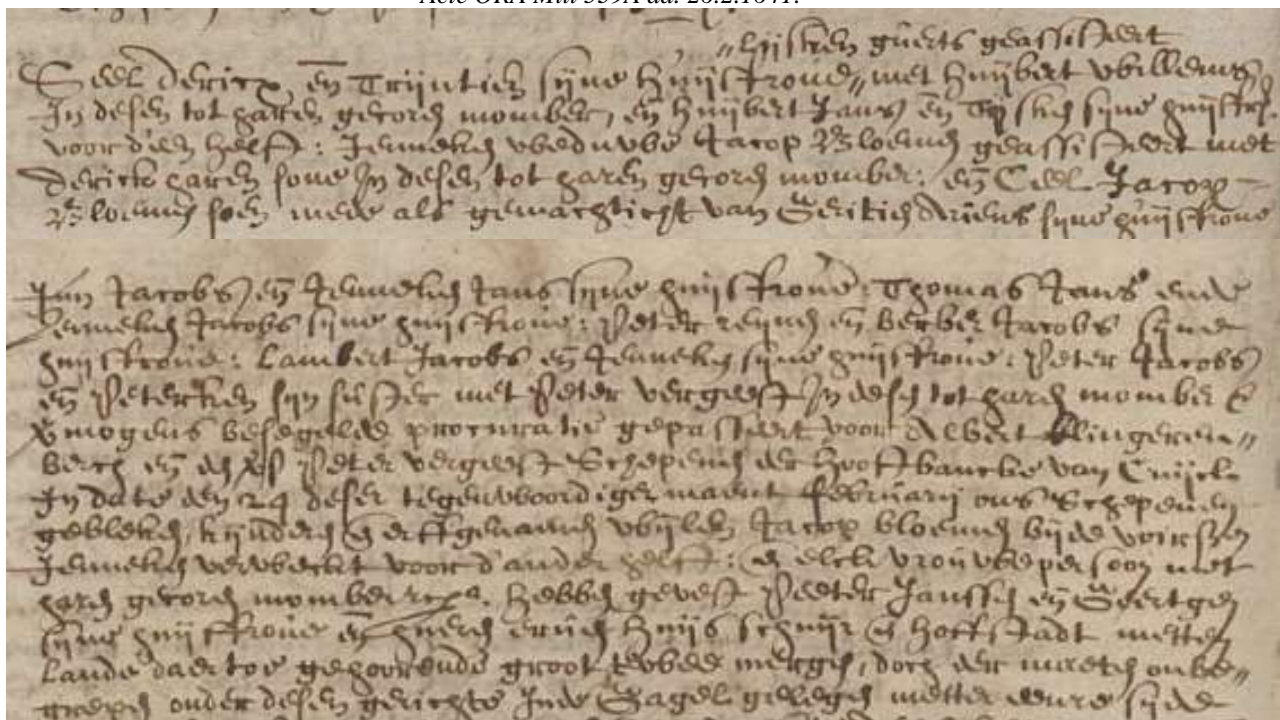 Acte ORA Mill 339A dd. 26.2.1641.
"Lijsken guerts geassisteert
Ceel Dericx, en Trijntien sijne huijsfroue" met Huijbert Willems
In desen tot haren gecoren momber, en Huijbert Jans en sijne huijsfr.
voor d'een helft: Jenneken weduwe Jacop Bloemen geassisteert met
Derick haren sone In desen tot haren gecoren momber: en Ceel Jacop
Bloemen soen mede als gemachticht van Geritien Ariens sijne huijsfroue
Jan Jacobs en Jenneken Jans sijne huijsfroue: Thomas Jans ende
Jenneken Jacobs sijne huijsfroue: Peter reijnen en Berber Jacobs sijne
huijsfroue: Lambert Jacobs en Jenneken sijne huijsfroue: Peter Jacobs
en Peterken sijn suster met Peter vergeest In desen tot haren momber
vermogens besegelde procuratie gepasseert voor Albert Clingeren"
berch en Peter vergeest Schepenen der hooftbancke van Cuijck
In date den 24 deser tegenwoordiger maent february ons Schepenen
gebleken, kijnderen erffgenamen wijlen Jacop bloemen bijde voirschr
Jenneken verweckt voor d'ander helft: elck vrouwe persoon met
haren gecoren momber hebben gevest Peeter Janssen en Geertgen
sijne huijsfroue en hueren erven huijs schuijr hoffstadt metten
Lande daertoe gehoorende groot twee mergen, doch der maeten onbe"
grepen onder desen gerichte Inde Gagel gelegen metter eenre sijde